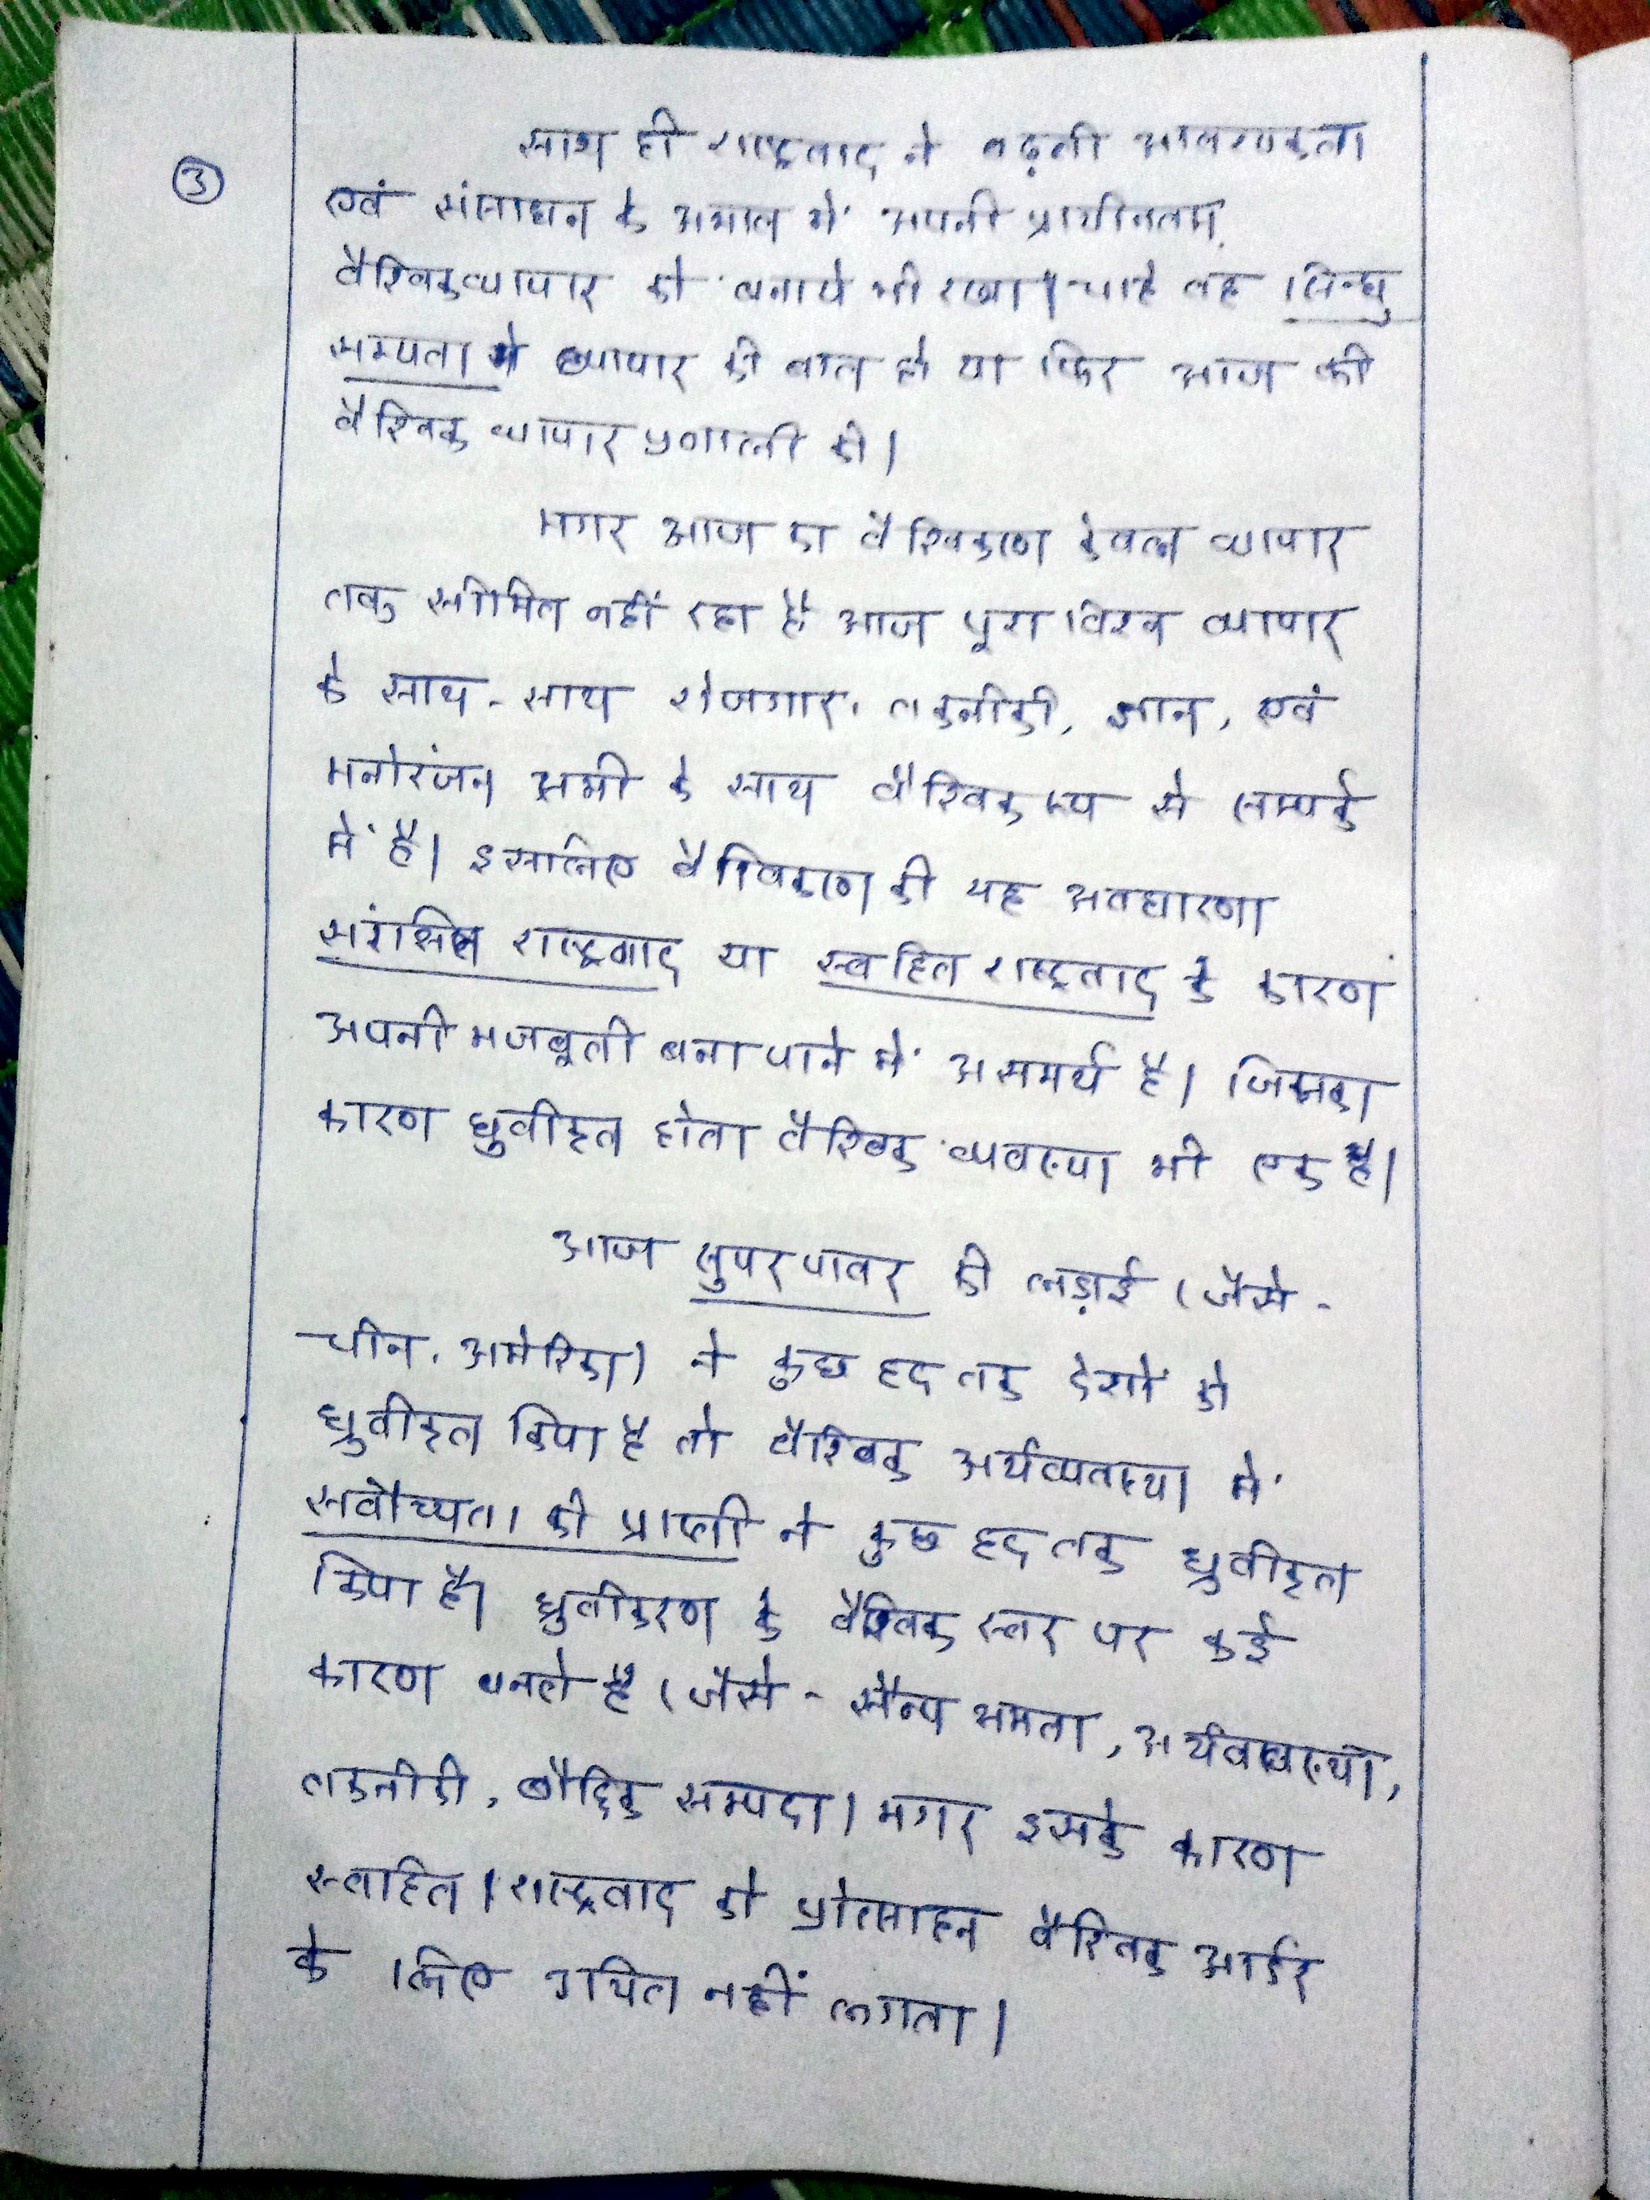 ③
साथ ही राष्ट्रवाद ने बढ़ती आवश्यकता
एवं संसाधन के अभाव में अपनी प्राचीनतम
वैश्विक व्यापार को बनाये भी रखा। चाहे वह सिन्धु
सभ्यता मे व्यापार की बात हो या फिर आज की
वैश्विक व्यापार प्रणाली की।
मगर आज का वैश्विकरण केवल व्यापार
तक सीमित नहीं रहा है आज पूरा विश्व व्यापार
के साथ-साथ रोजगार, तकनीकी, ज्ञान, एवं
मनोरंजन सभी के साथ वैश्विक रूप से सम्पर्क
में है। इसलिए वैश्विकरण की यह अवधारणा
संरक्षित राष्ट्रवाद या स्वहित राष्ट्रवाद के कारण
अपनी मजबूती बना पाने में असमर्थ है। जिसका
कारण ध्रुवीकृत होता वैश्विक व्यवस्था भी एक है।
आज सुपर पावर की लड़ाई (जैसे-
चीन, अमेरिका) ने कुछ हद तक देशों को
ध्रुवीकृत किया है तो वैश्विक अर्थव्यवस्था में
सर्वोच्यता की प्राप्ती ने कुछ हद तक ध्रुवीकृत
किया है। ध्रुवीकरण के वैश्विक स्तर पर कई
कारण बनते है (जैसे - सैन्य क्षमता, अर्थवयवस्था,
तकनीकी, बौद्दिक सम्पदा। मगर इसके कारण
स्वहित राष्ट्रवाद को प्रोत्साहन वैश्विक आर्डर
के लिए उचित नहीं लगता।